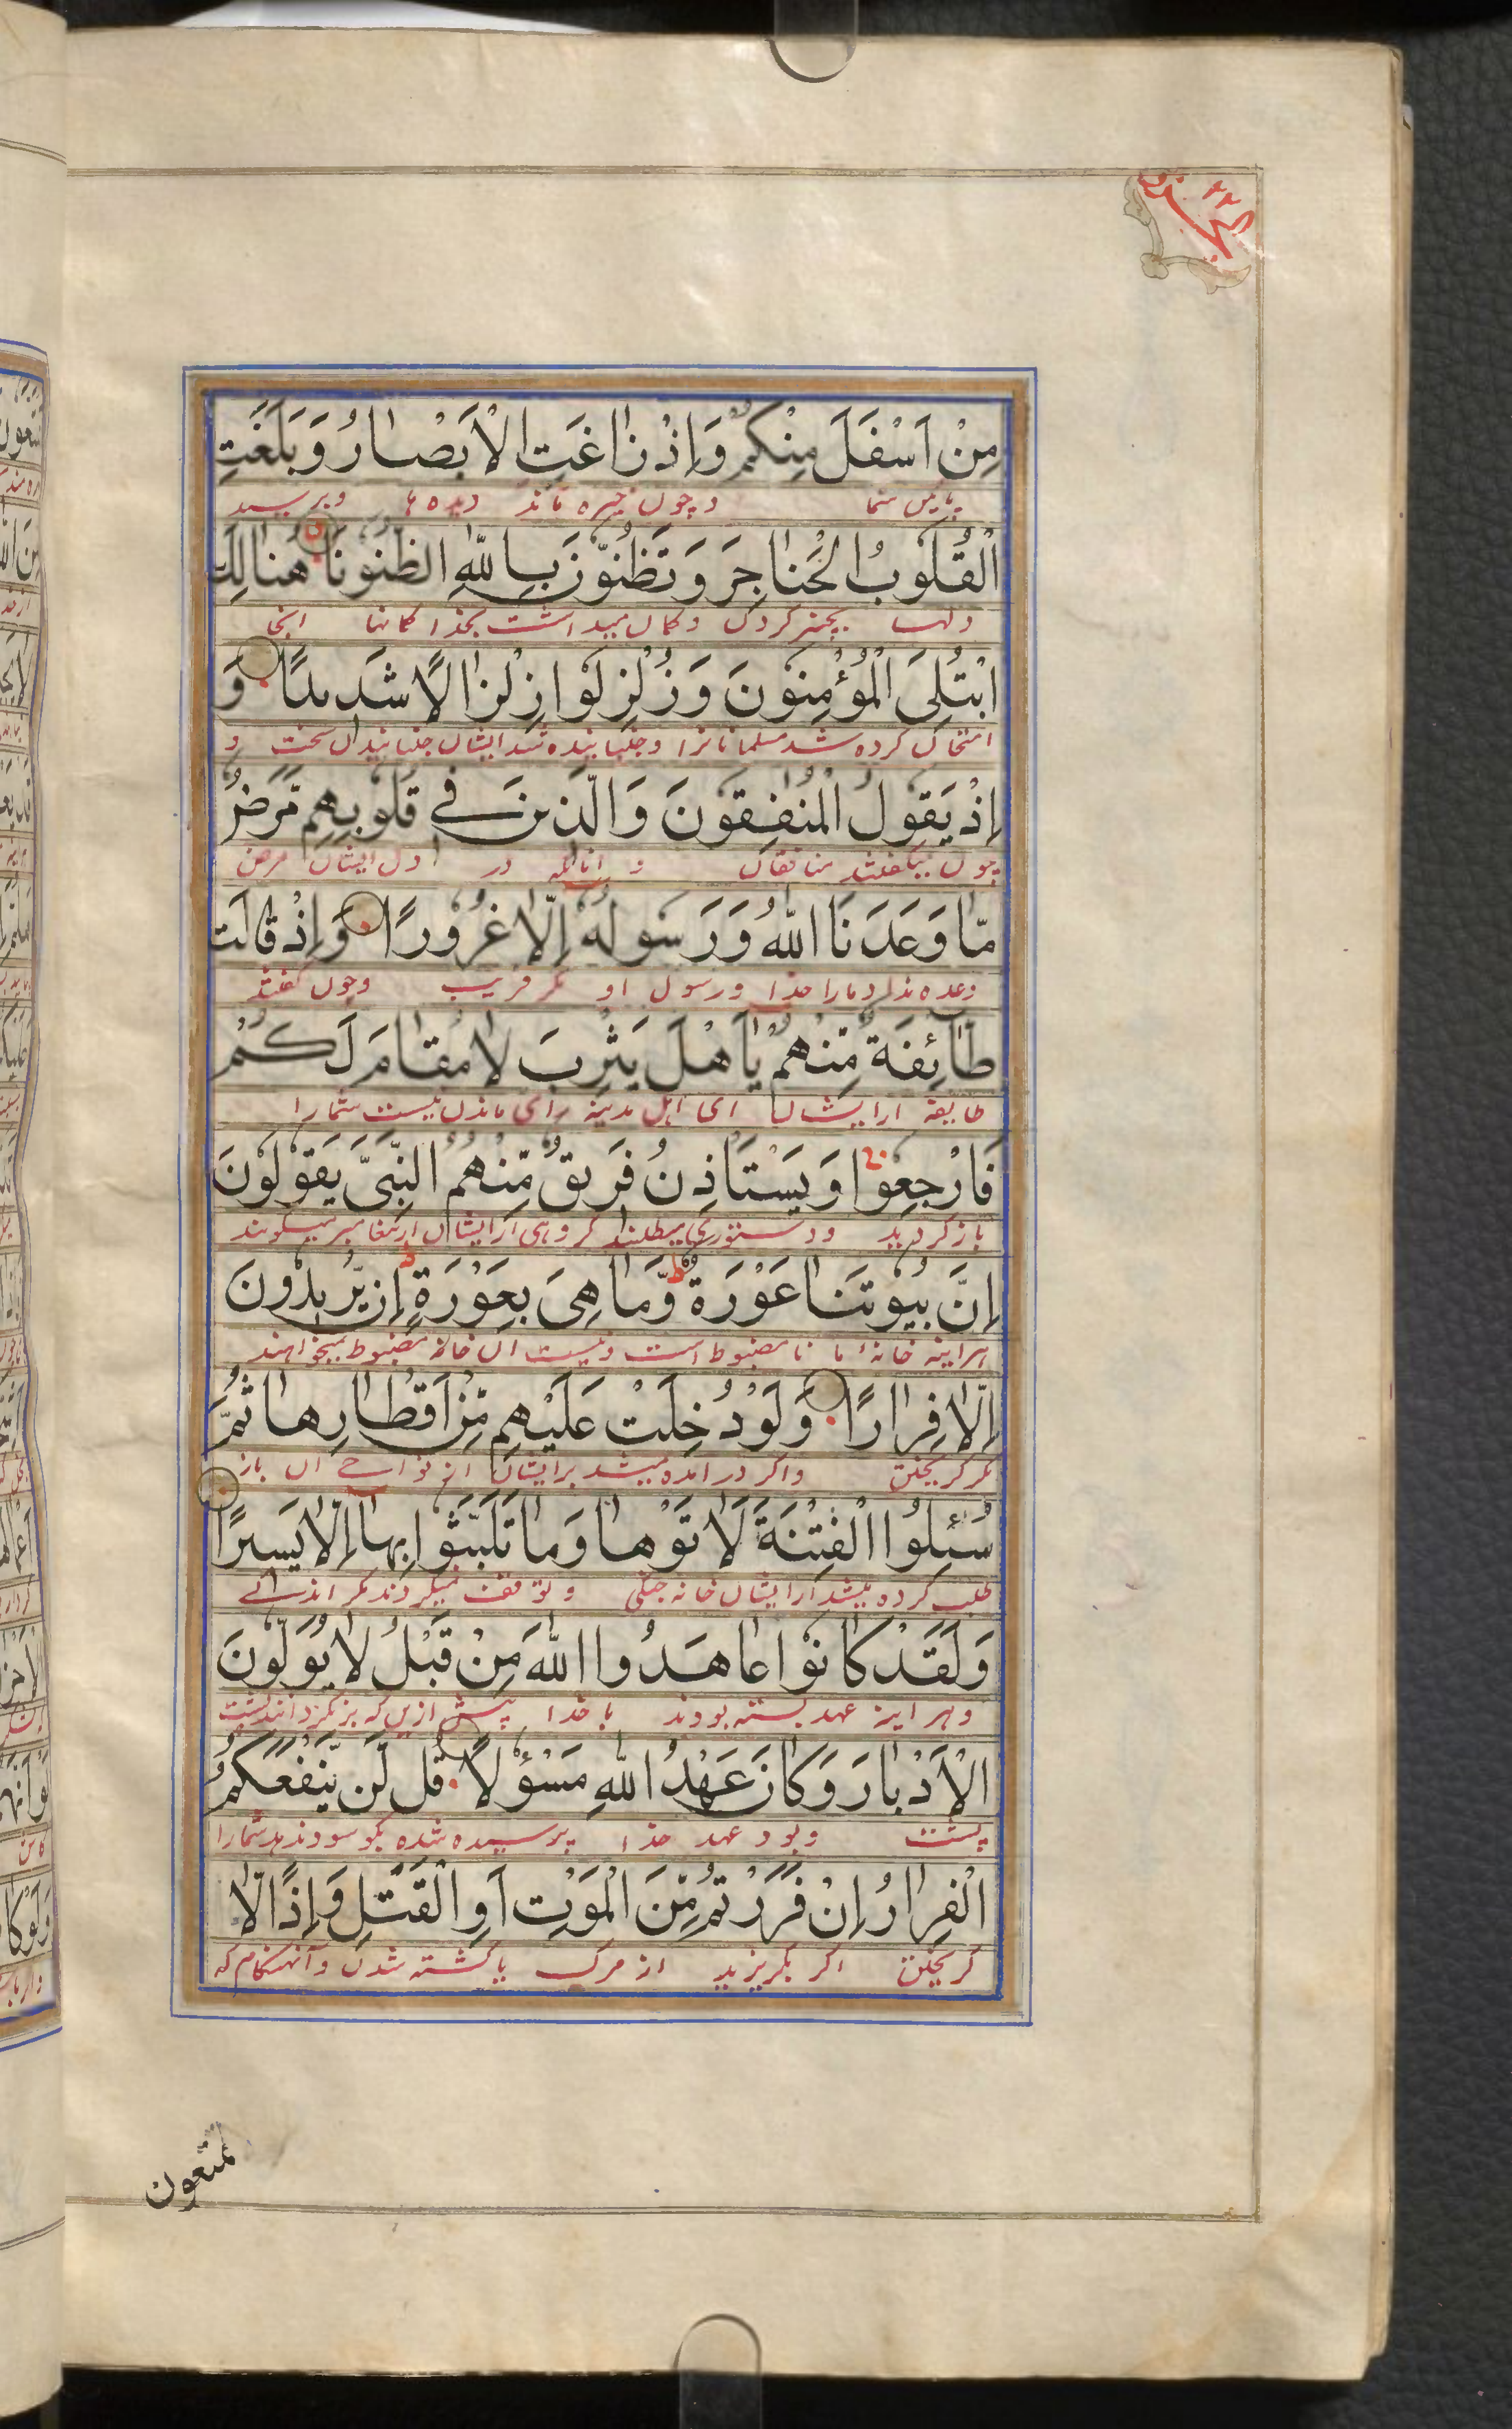 الجزو ٢٢
مِنْ اَسْفَلَ مِنْكُمْ وَاِذْ زَاغَتِ الْاَبْصَارُ وَبَلَغَتِ
پایین شما و چون خیره ماند دیده ها و برسید
الْقُلُوْبُ الْحَنَاجِرَ وَتَظُنُّوْنَ بِاللّٰهِ الظُّنُوْنَا هُنَالِكَ
دلها بچنبر گردن و گمان میداشت بخدا گمانها انجا
ابْتُلِىَ الْمُؤْمِنُوْنَ وَزُلْزِلُوْا زِلْزَالًا شَدِيدًا وَ
امتحان کرده شد مسلمانانرا و جنبانیده شد ایشان جنبانیدن سخت و
اِذْ يَقُوْلُ الْمُنٰفِقُوْنَ وَالَّذِيْنَ فِيْ قُلُوْبِهِمْ مَرَضٌ
چون میگفتند منافقان و انانکه در دل ایشان مرض
مَّا وَعَدَنَا اللّٰهُ وَرَسُوْلُهٗ اِلَّا غُرُوْرًا وَاِذْ قَالَتْ
وعده نداد مارا خدا و رسول او مگر فریب و چون گفتند
طَائِفَةٌ مِّنْهُمْ يَا اَهْلَ يَثْرِبَ لَا مُقَامَ لَكُمْ
طایفه ازایشان ای اهل مدینه رای ماندن نیست شمارا
فَارْجِعُوْا وَيَسْتَاْذِنُ فَرِيقٌ مِّنْهُمُ النَّبِىَّ يَقُوْلُوْنَ
بازگردید و دستوری میطلبند گروهی ازایشان ازپیغامبر میگویند
اِنَّ بُيُوْتَنَا عَوْرَةٌ وَّمَا هِىَ بِعَوْرَةٍ اِنْ يُّرِيدُوْنَ
هراینه خانهٔ ما نا مضبوط است و نیست ان خانه نا مضبوط نمیخواهند
اِلَّا فِرَارًا وَلَوْ دُخِلَتْ عَلَيْهِمْ مِّنْ اَقْطَارِهَا ثُمَّ
مگر گریختن و اگر درامده میشد برایشان از نواحی ان باز
سُئِلُوا الْفِتْنَةَ لَاٰتَوْهَا وَمَا تَلَبَّثُوْا بِهَا اِلَّا يَسِيرًا
طلب کرده میشد ازایشان خانه جنگی و توقف نمیکردند مگر اندکے
وَلَقَدْ كَانُوْا عَاهَدُوا اللّٰهَ مِنْ قَبْلُ لَا يُوَلُّوْنَ
و هراینه عهد بسته بودند با خدا پیش ازین که برنگردانند پشت
الْاَدْبَارَ وَكَانَ عَهْدُ اللّٰهِ مَسْؤُلًا قُل لَّنْ يَّنْفَعَكُمُ
پشت و بود عهد خدا پرسیده شده بگو سود ندهد شمارا
الْفِرَارُ اِنْ فَرَرْتُمْ مِّنَ الْمَوْتِ اَوِ الْقَتْلِ وَاِذًا لَّا
گریختن اگر بگریزید از مرگ یا کشته شدن و آنهنگام که
تمتعون